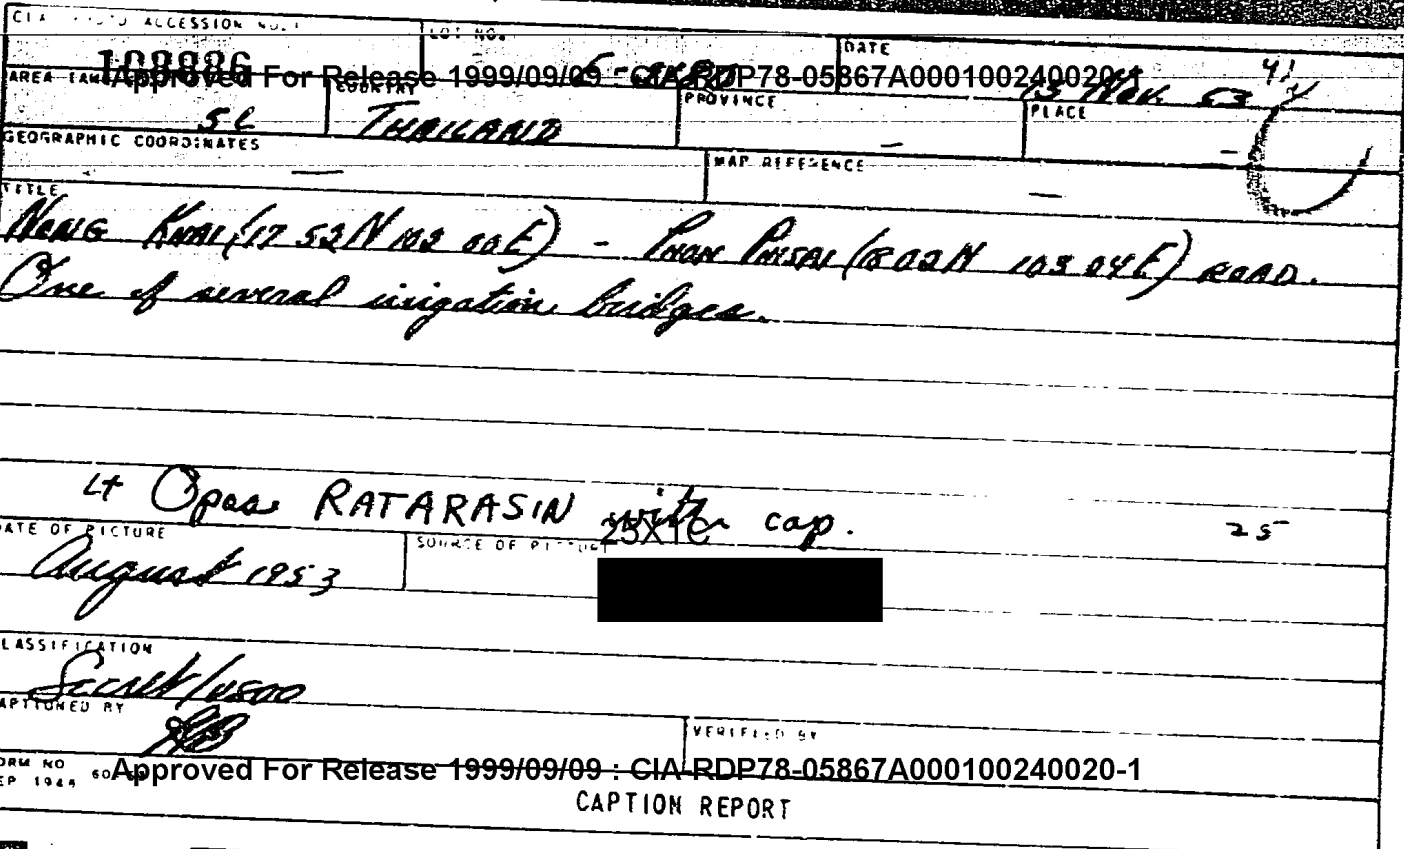 CIA PHOTO ACCESSION NO. LOT NO. DATE
108886
Approved For Release 1999/09/09 : CIA-RDP78-05867A000100240020-1
AREA COUNTRY PROVINCE PLACE
THAILAND - -
13 Nov. 53
GEOGRAPHIC COORDINATES MAP REFERENCE
— —
TITLE
NONG KHAI (17 52N 102 00E) - PHON PHISAI (1802N 103 04E) ROAD.
One of several irigation bridges.
Lt Opas RATARASIN with cap. 25
25X1C
DATE OF PICTURE SOURCE OF PICTURE
August 1953
CLASSIFICATION
Secret/USOO
CAPTIONED BY VERIFIED BY
FORM NO
SEP 1946
Approved For Release 1999/09/09 : CIA-RDP78-05867A000100240020-1
CAPTION REPORT